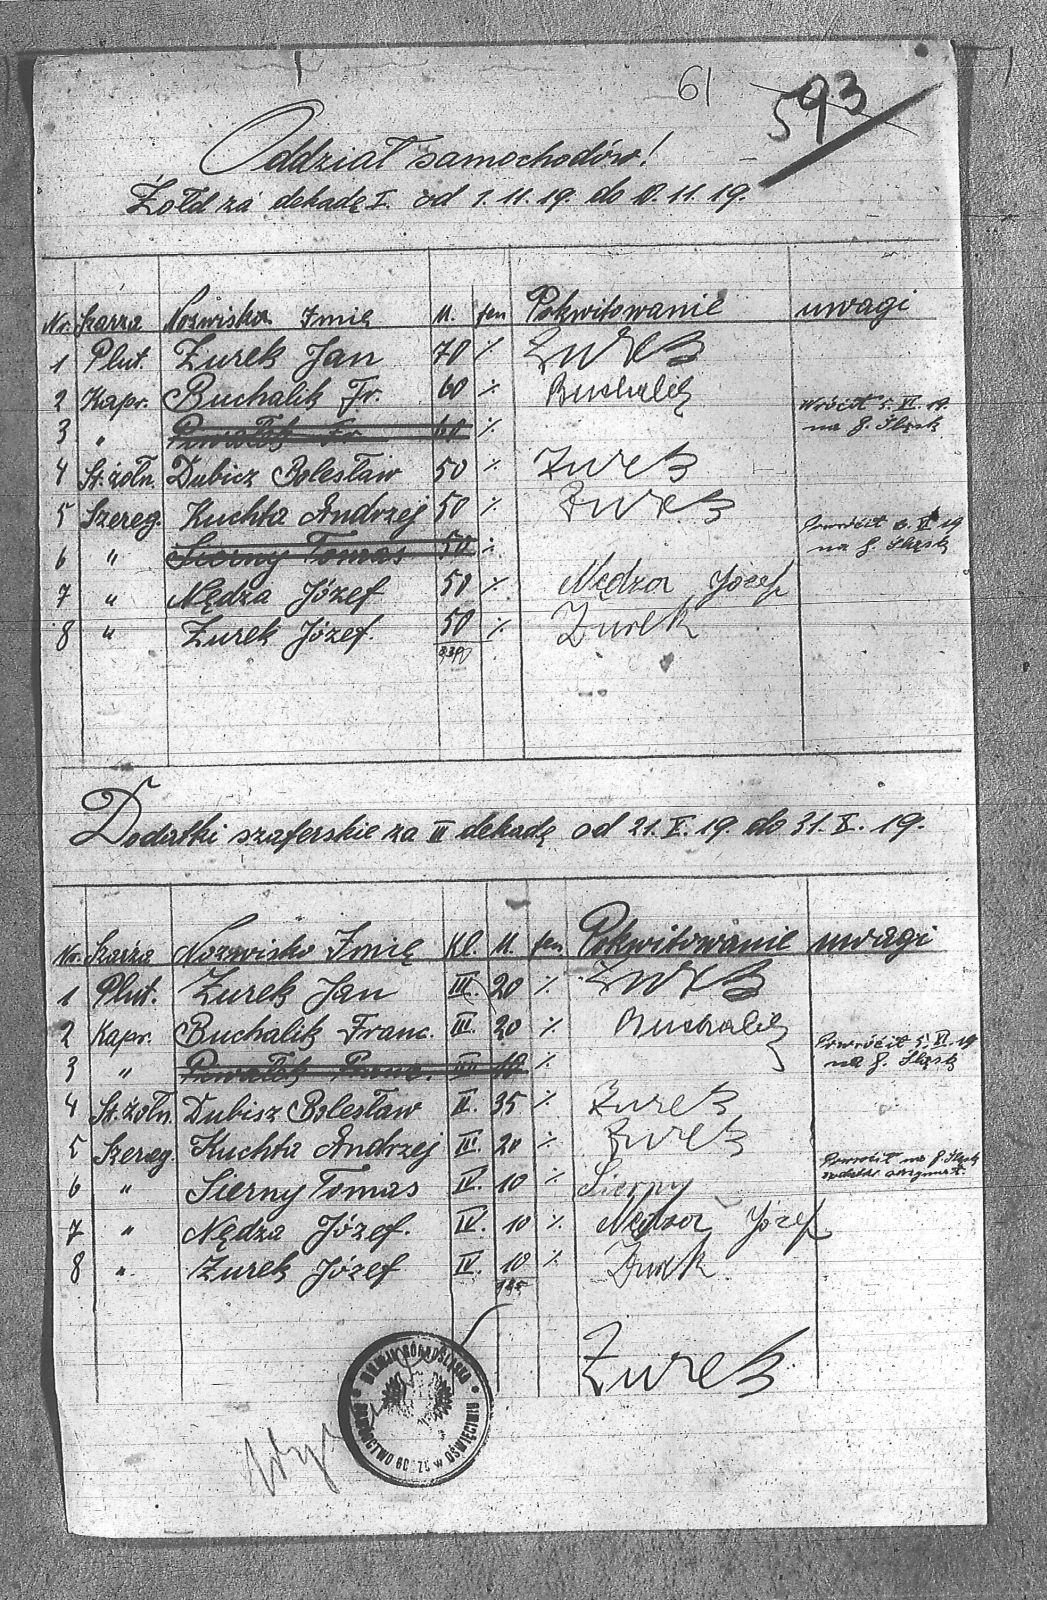 61
593
Oddział samochodów!
Żołd za dekadę I. od 1.11.19. do 10.11.19.
Nr. Szarża Nazwisko Imię M. fen Pokwitowanie uwagi
1 Plut. Żurek Jan 70 ⁒ Żurek
2 Kapr. Buchalik Fr. 60 ⁒ Buchalik
3 " Powałek Fr. 60 ⁒ Wrócił 5. XI. 19. na G. Śląsk
4 St. żołn. Dubicz Bolesław 50 ⁒ Żurek
5 Szereg. Kuchta Andrzej 50 ⁒ Żurek
6 " Sierny Tomas 50 ⁒ Powrócił 6. XI 19 na G. Śląsk
7 " Nędza Józef 50 ⁒ Nędza Józef
8 " Żurek Józef. 50 ⁒ Żurek
330
Dodatki szoferskie za III dekadę od 21. X. 19. do 31. X. 19.
Nr. Szarża Nazwisko Imię Kl. M. fen Pokwitowanie uwagi
1 Plut. Żurek Jan III. 20 ⁒ Żurek
2 Kapr. Buchalik Franc. III. 20 ⁒ Buchalik
3 " Powałek Franc. 10 ⁒ Powrócił 5. XI. 19 na G. Śląsk
4 St. żołn. Dubisz Bolesław II. 35 ⁒ Żurek
5 Szereg. Kuchta Andrzej III. 20 ⁒ Żurek
6 " Sierny Tomas IV. 10 ⁒ Sierny Powrócił na G. Śląsk
7 " Nędza Józef. IV. 10 ⁒ Nędza Józef
8 " Żurek Józef IV. 10 ⁒ Żurek
125
Żurek
GÓRNOŚLĄSKA
DOWÓDZTWO OBOZU w OŚWIĘCIMIU